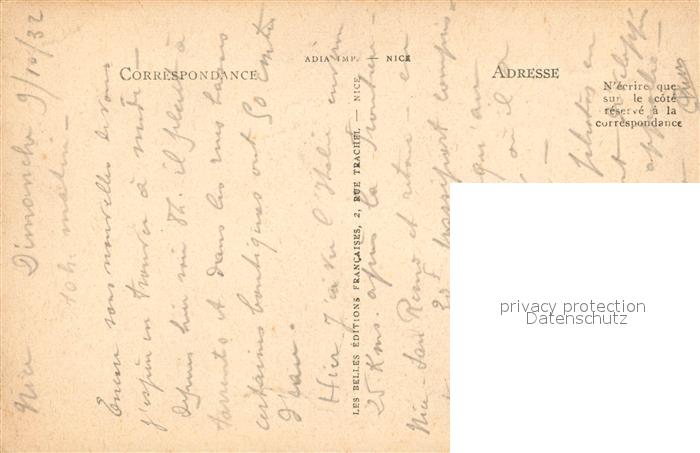 CORRESPONDANCE
ADIA IMP. — NICE
ADRESSE
N'écrire que
sur le côté
réservé à la
correspondance
LES BELLES ÉDITIONS FRANÇAISES, 2, RUE TRACHEL — NICE
Nice Dimanche 9/10/32
10 h. matin —
Encore sans nouvelles de vous
j'espère en trouver à midi —
Depuis hier mi il pleut à
torrents et dans les rues basses
certaines boutiques ont 50 cent.
d'eau.
Hier j'ai vu l'Italie environ
25 Kms. après la frontière —
Nice - San Remo et retour en
25 F passeport compris —
qu'au
où il a
photos en
privacy protection
Datenschutz